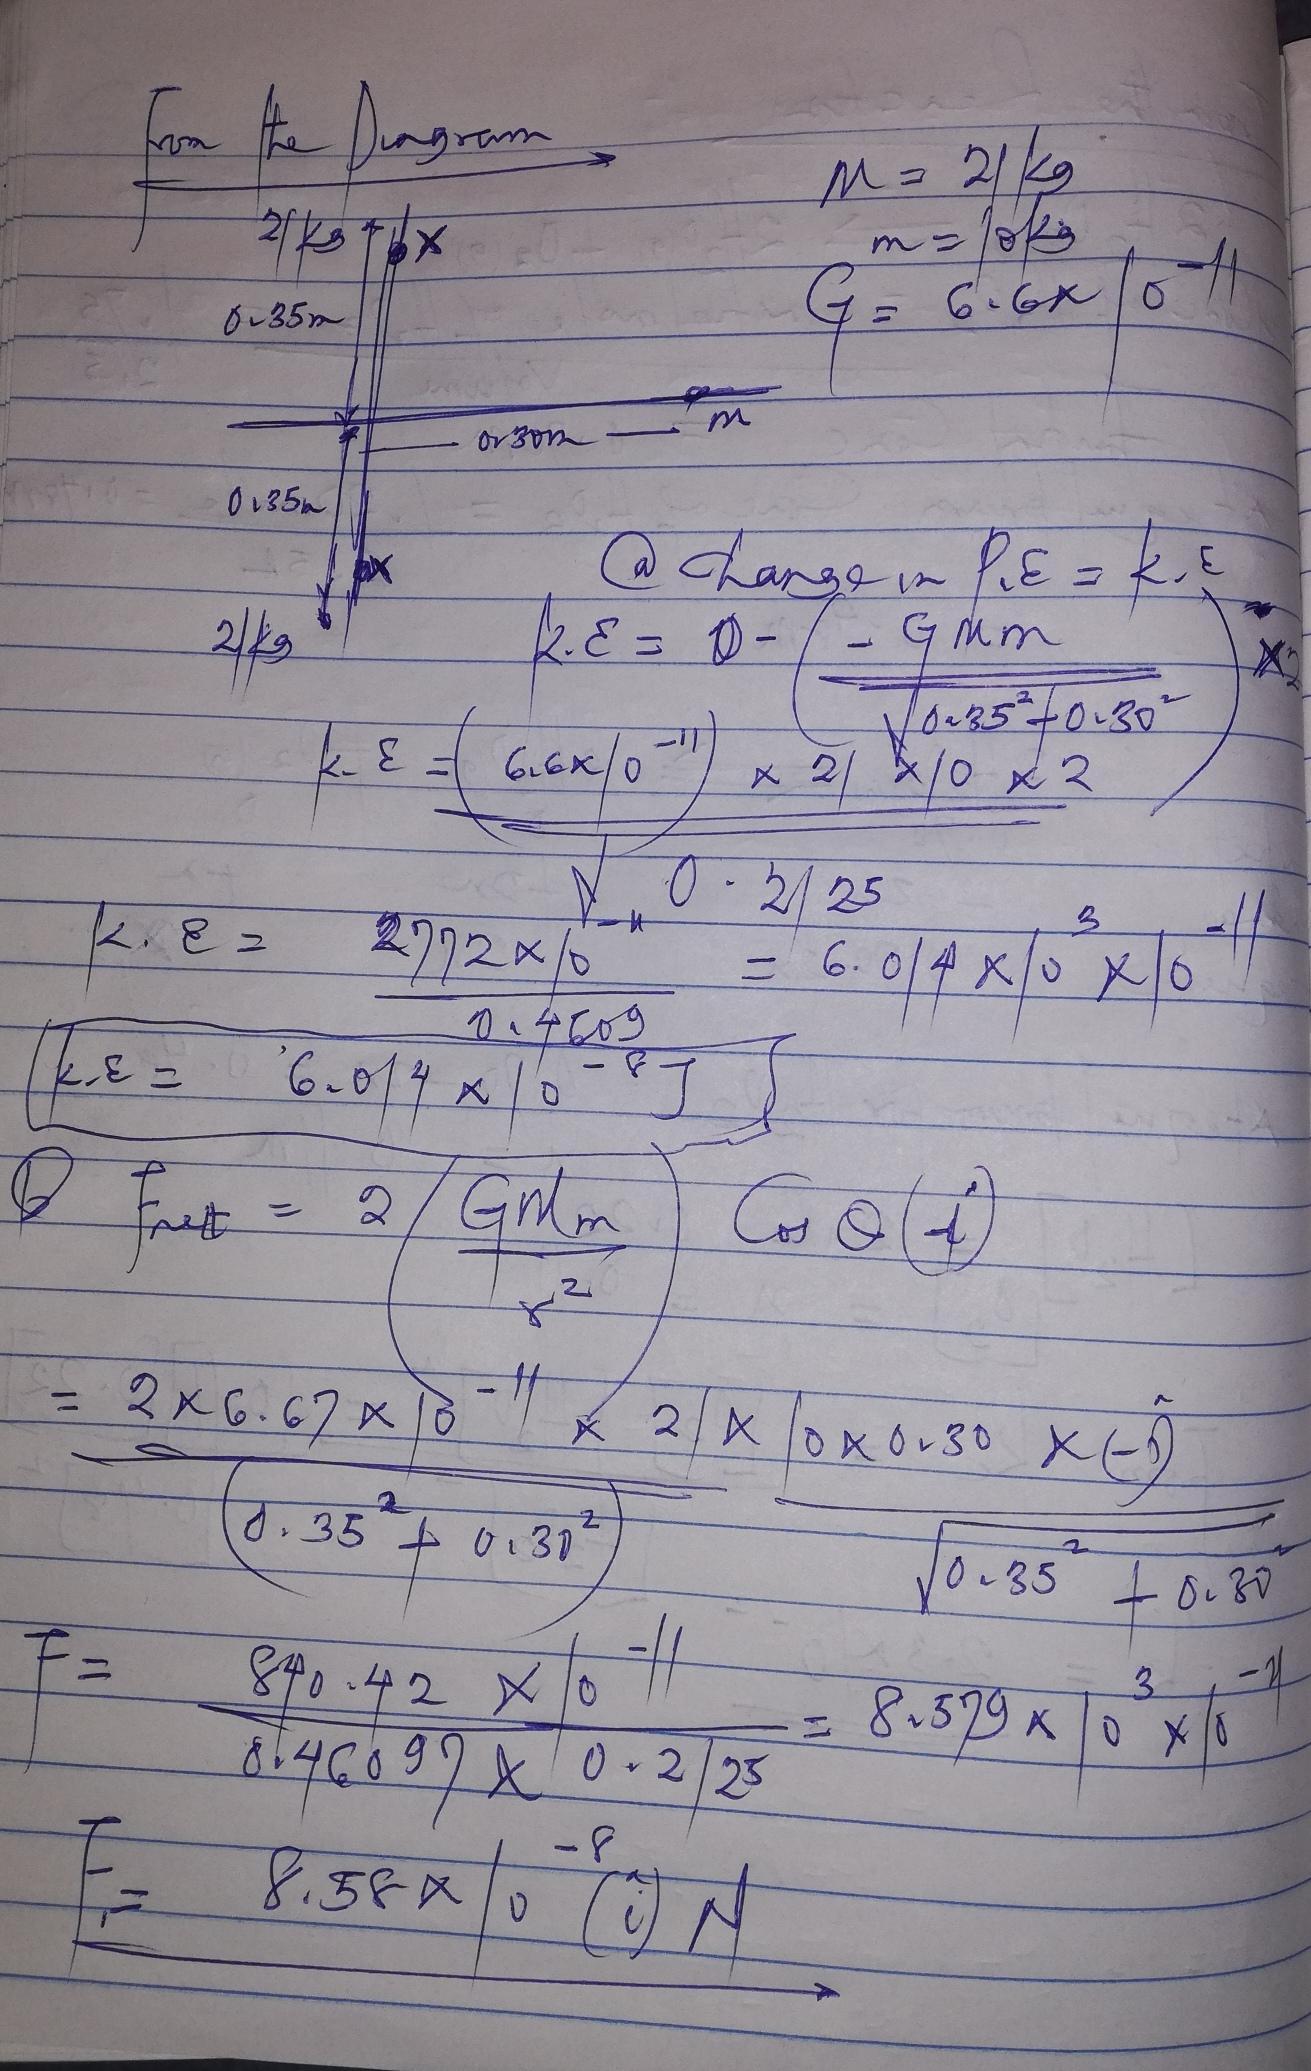 From the Diagram
M = 21kg
21kg x
m = 10kg
0.35m
G = 6.6x10^-11
m
0.30m
0.35m
x
(a) Change in P.E = K.E
21kg
K.E = 0 - (- GMm / √0.35² + 0.30²) x2
K.E = (6.6x10^-11) x 21 x 10 x 2
√0.2125
K.E = 2772x10^-11 / 0.4609 = 6.014 x 10^3 x 10^-11
K.E = 6.014 x 10^-8 J
(b) Fnett = 2 (GMm / r²) Cos θ (-i)
= 2 x 6.67 x 10^-11 x 21 x 10 x 0.30 x (-î)
(0.35² + 0.30²) √0.35² + 0.30²
F = 840.42 x 10^-11 / 0.46097 x 0.2125 = 8.579 x 10^3 x 10^-11
F = 8.58 x 10^-8 (î) N